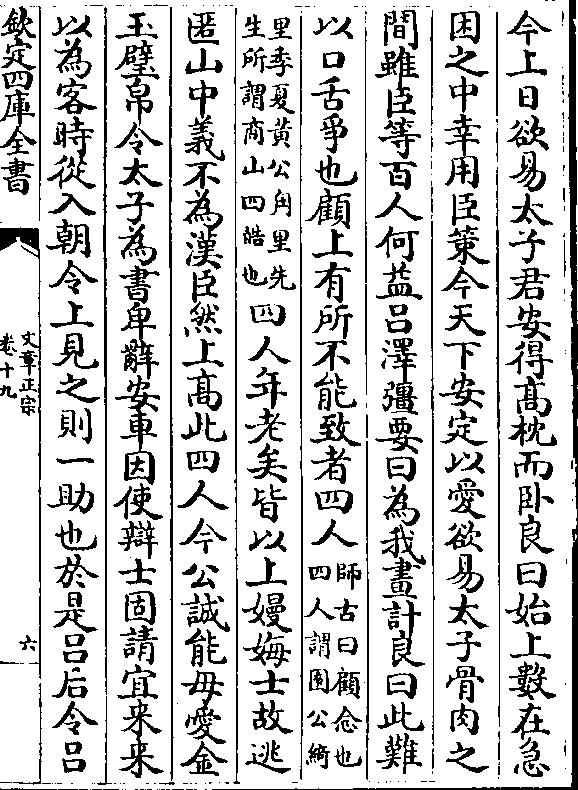 今上日欲易太子君安得髙枕而卧良曰始上數在急
困之中幸用臣策今天下安定以愛欲易太子骨肉之
間雖臣等百人何益吕澤彊要曰為我畫計良曰此難
以口舌爭也顧上有所不能致者四人師古曰顧念也
四人謂園公綺
里季夏黄公角里先
生所謂商山四皓也四人年老矣皆以上嫚娒士故逃
匿山中義不為漢臣然上髙此四人今公誠能毋愛金
玉璧帛令太子為書卑辭安車因使辯士固請宜来来
以為客時從入朝令上見之則一助也於是吕后令吕
欽定四庫全書
文章正宗
卷十九
六